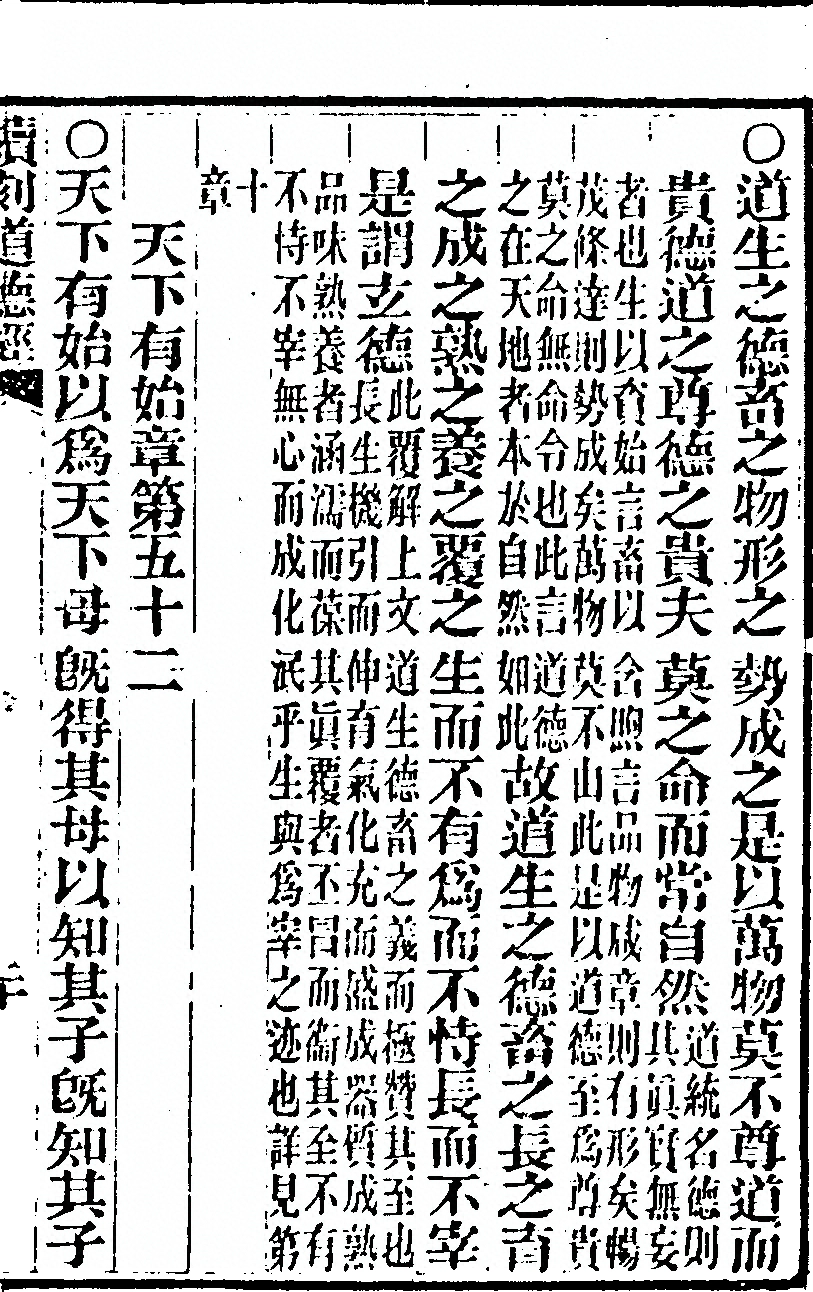 ○道生之德畜之物形之勢成之是以萬物莫不尊道而
貴德道之尊德之貴夫莫之命而常自然道統名德則
其眞實無妄
者也生以資始言畜以含煦言品物成章則有形矣暢
茂條達則勢成矣萬物莫不由此是以道德至爲尊貴
莫之命無命令也此言道德
之在天地者本於自然如此故道生之德畜之長之育
之成之熟之養之覆之生而不有爲而不恃長而不宰
是謂玄德此覆解上文道生德畜之義而極贊其至也
長生機引而伸育氣化充而盛成器質成熟
品味熟養者涵濡而葆其眞覆者丕冒而衞其至不有
不恃不宰無心而成化泯乎生與爲宰之迹也詳見第
十
章
天下有始章第五十二
○天下有始以爲天下母旣得其母以知其子旣知其子
刻道德經